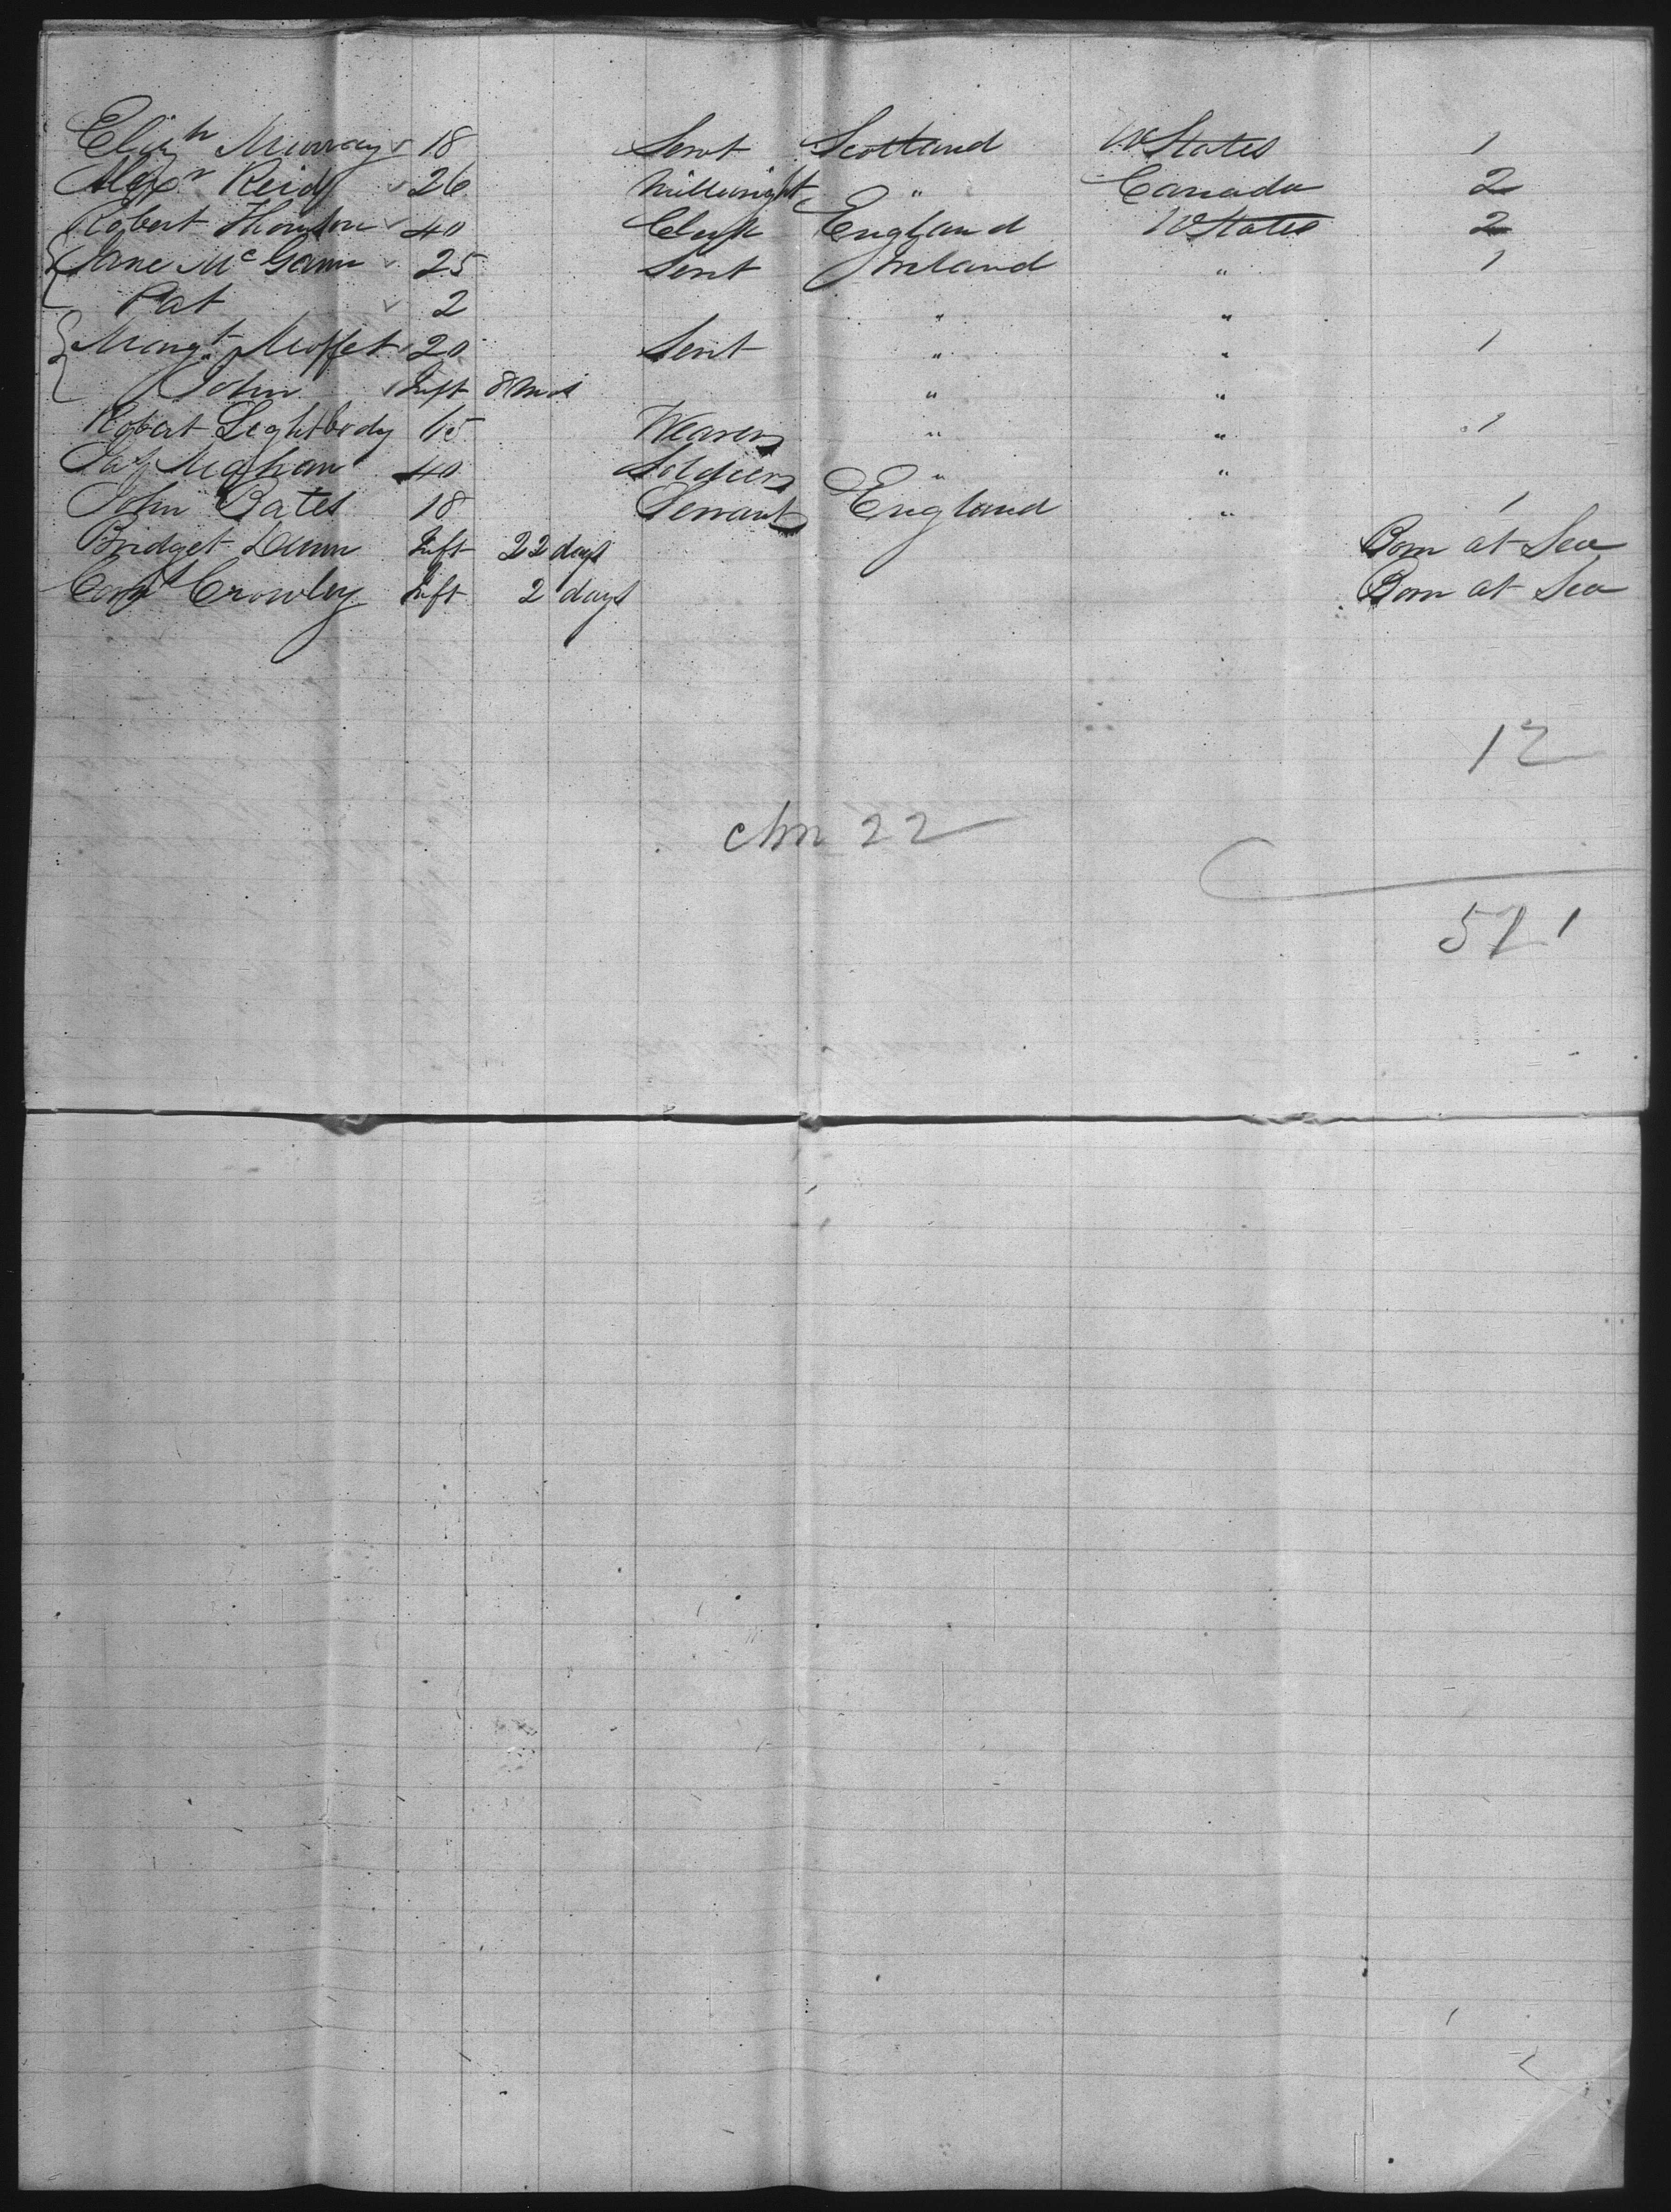 Elizth Murray 18 Servt Scotland U States 1
Alexr Reid 26 Millwright " Canada 2
Robert Thomson 40 Clerk England U States 2
Jane McGann 25 Servt Ireland " 1
Pat 2 " "
Margt Moffet 20 Servt " " 1
John Inft 8 Mos " "
Robert Lightbody 45 Weaver " " 1
Meghan 40 Soldier " "
John Bates 18 Servant England " 1
Bridget Dunn Inft 22 days Born at Sea
Crowley Inft 2 days Born at Sea
12
chn 22
511